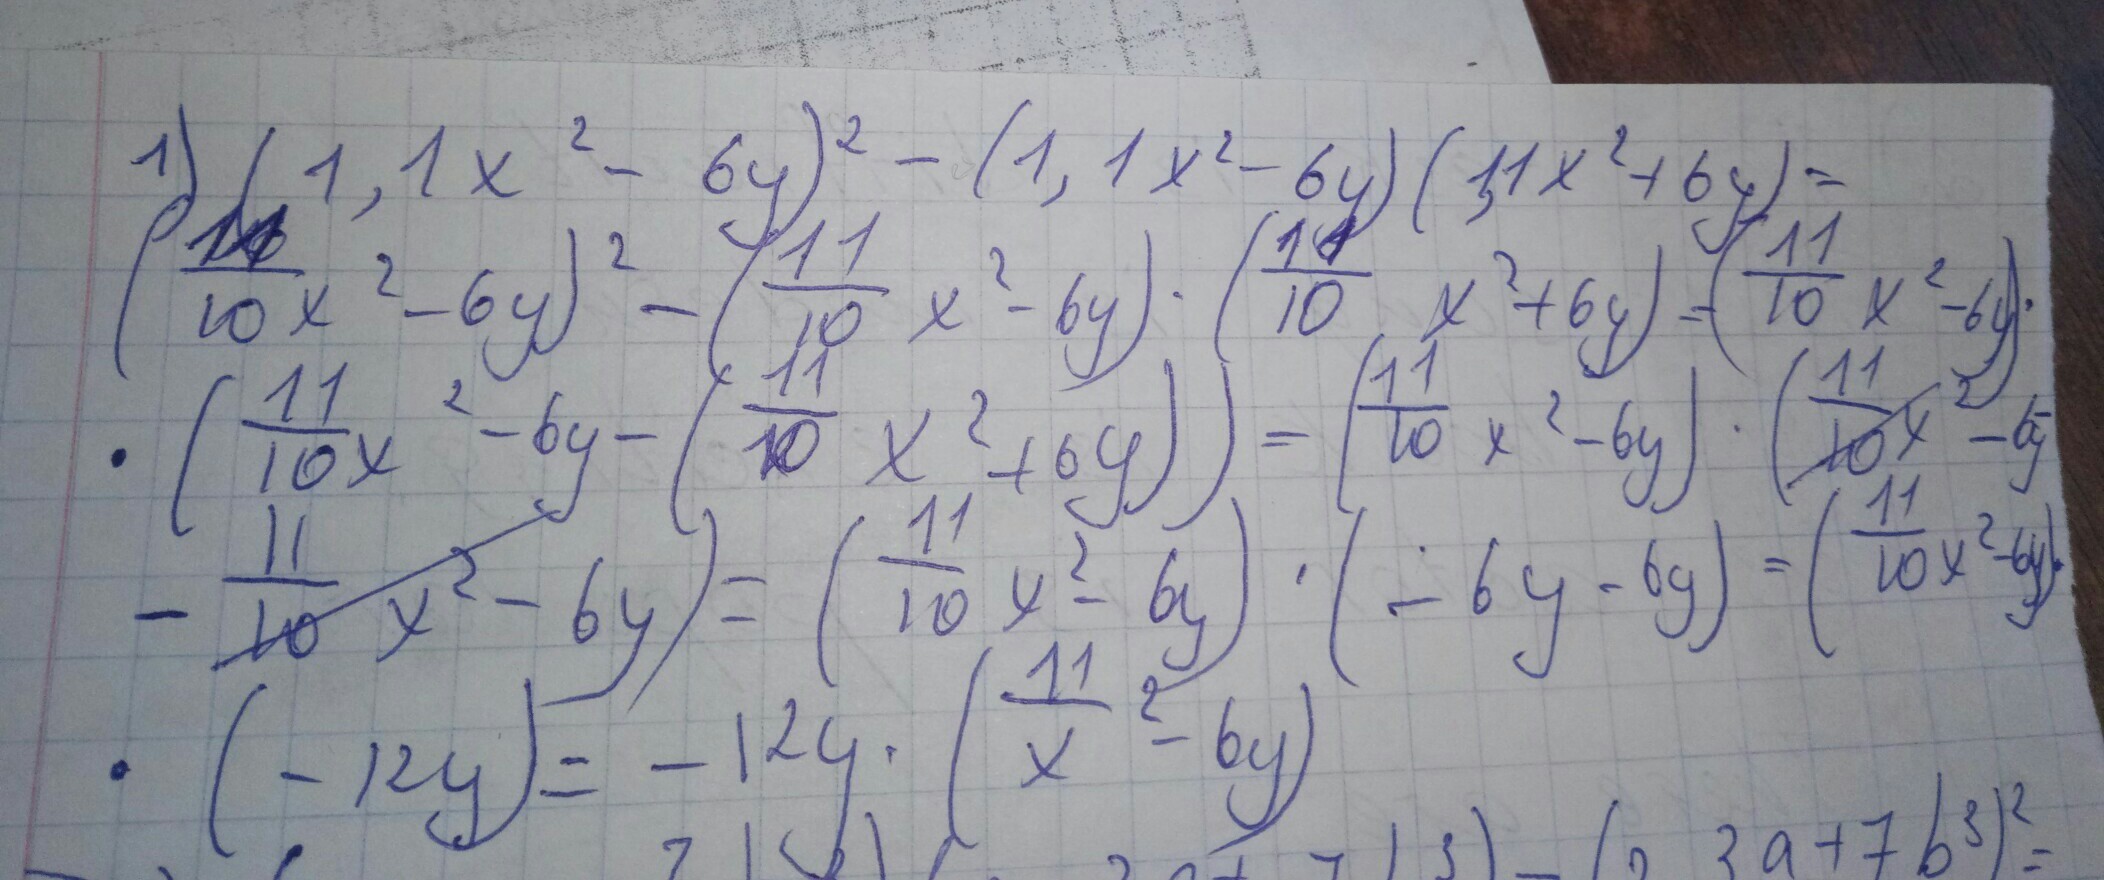 1) (1,1x² - 6y)² - (1,1x² - 6y)(1,11x² + 6y) =
(11/10 x² - 6y)² - (11/10 x² - 6y) · (11/10 x² + 6y) = (11/10 x² - 6y) ·
· (11/10 x² - 6y - (11/10 x² + 6y)) = (11/10 x² - 6y) · (11/10 x² - 6y
- 11/10 x² - 6y) = (11/10 x² - 6y) · (- 6y - 6y) = (11/10 x² - 6y) ·
· (- 12y) = - 12y · (11/x ² - 6y)
3a + 7b³)² =